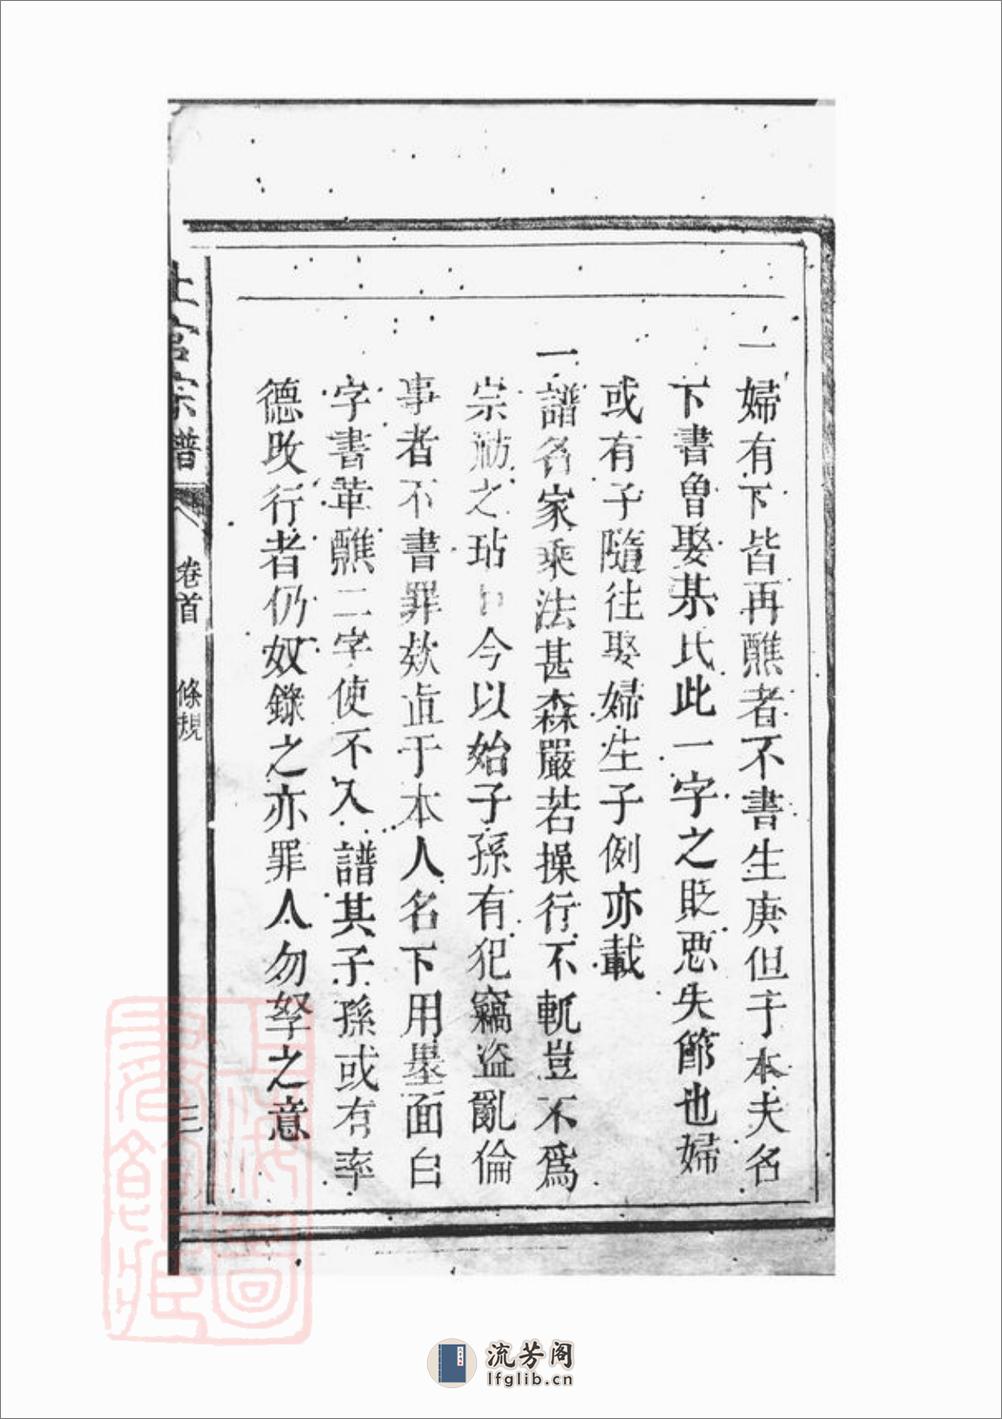 一婦有下皆再醮者不書生庚但于本夫名
下書曾娶某氏此一字之貶惡失節也婦
或有子隨往娶婦生子例亦載
一譜名家乘法甚森嚴若操行不軌豈不爲
宗祊之玷 今以始子孫有犯竊盜亂倫
事者不書罪欵直于本人名下用墨面白
字書革醮二字使不入譜其子孫或有率
德改行者仍奴錄之亦罪人勿孥之意
上官宗譜
卷首
條規
三
流芳阁
lfglib.cn